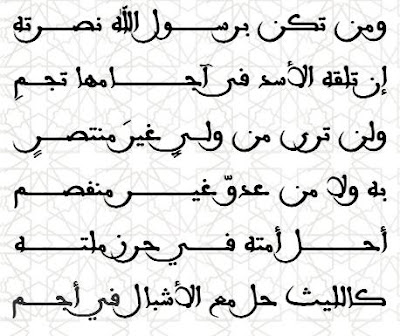 ومن تكن برسول الله نصرته
إن تلقه الأسد في آجامها تجمِ
ولن ترى من وليٍ غيرَ منتصرٍ
به ولا من عدوّ غير منفصم
أحل أمته في حرز ملته
كالليث حل مع الأشبال في أجم